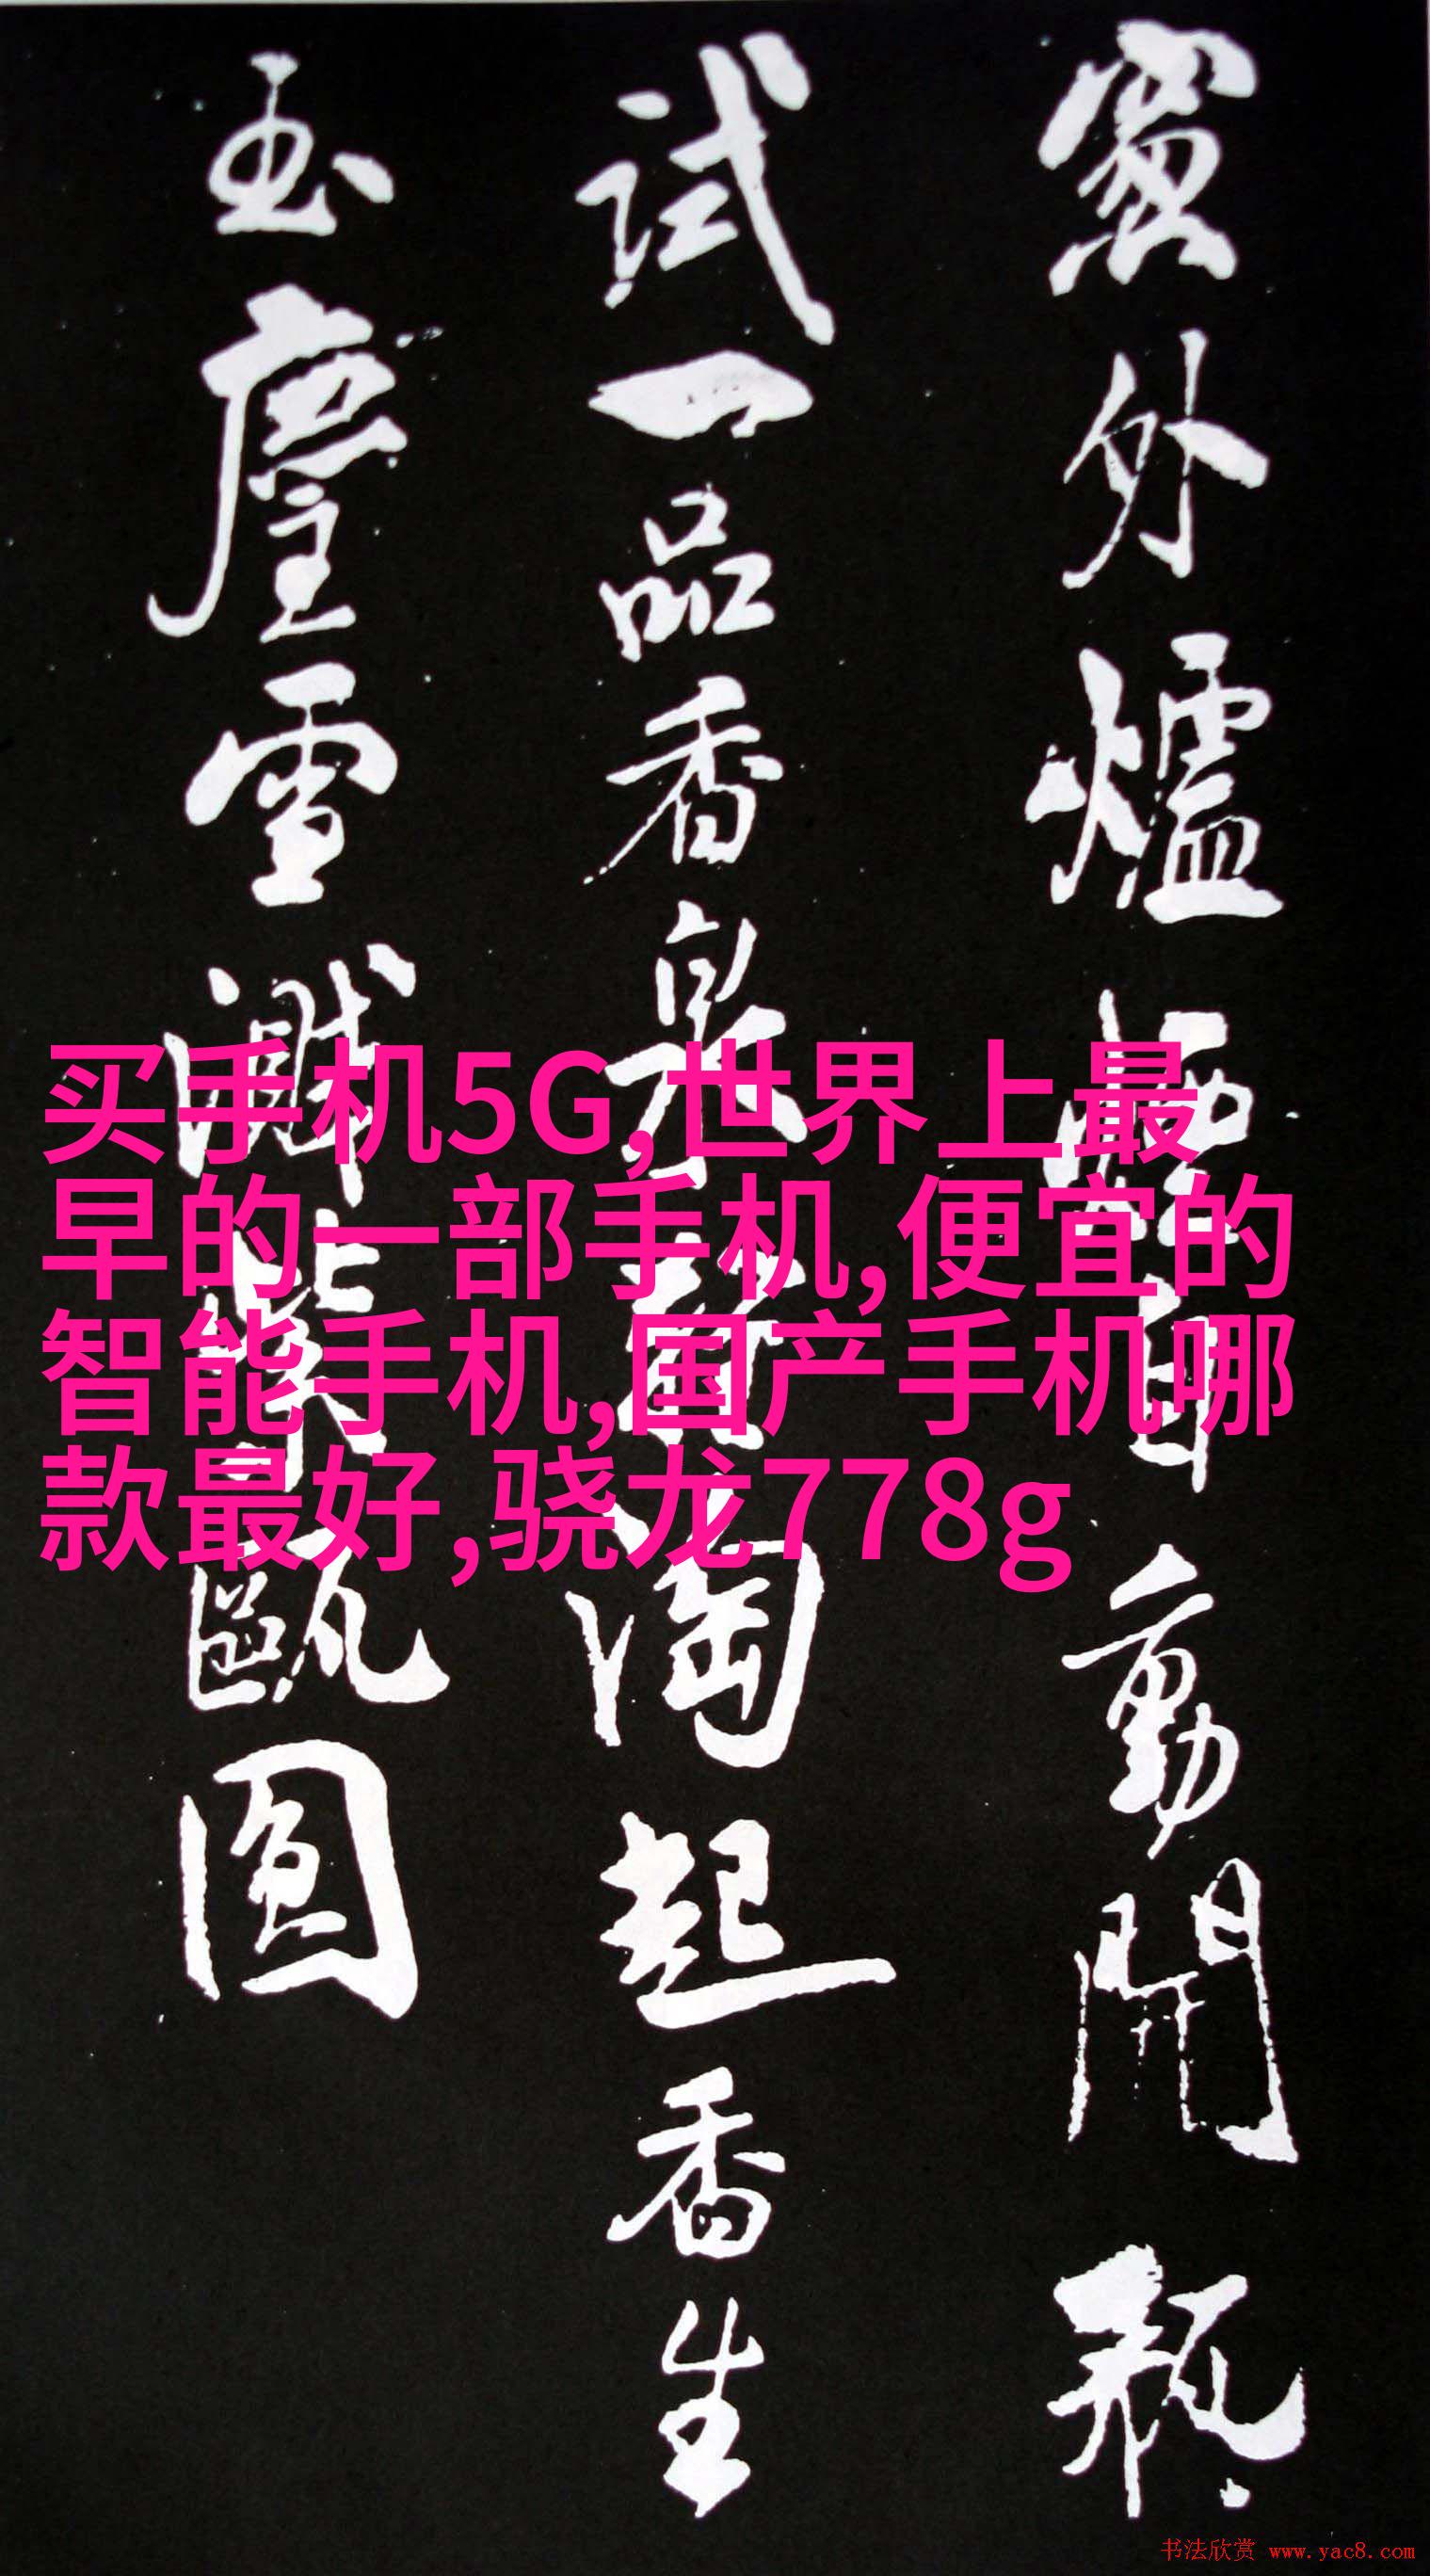 窻外爐煙自動開瓶
試一品香泉輕淘起香生
玉塵雪濺紫甌圓
买手机5G,世界上最
早的一部手机,便宜的
智能手机,国产手机哪
款最好,骁龙778g
书法欣赏 www.yac8.com